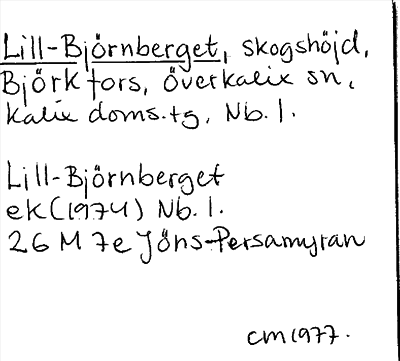 Lill-Björnberget, skogshöjd,
Björkfors, överkalix sn,
kalix doms.tg, Nb. l.
Lill-Björnberget
ek(1974) Nb. l.
26 M 7e Jöns-Persamyran
CM1977.